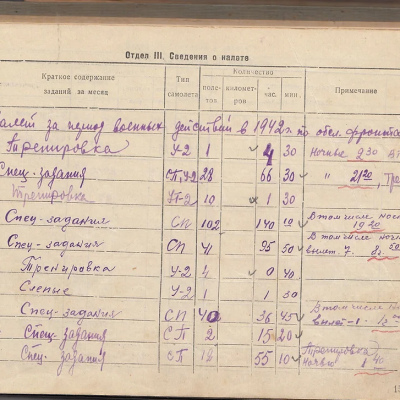 Отдел III. Сведения о налете
Краткое содержание заданий за месяц
Тип самолета
Количество
полетов
километров
час.
мин.
Примечание
за период военных действий в 1942 г. по обел.
Тренировка У-2 1 4 30 Ночные 2 30
Спец-задания СП, У-2 28 66 30 " 21 20
Тренировка УТ-2 10 1 30
Спец-задания СП 102 140 10 В том числе 19 20
Спец-задания СП 41 95 50 В том числе вылет 7. 8 50
Тренировка У-2 4 0 40
Слепые У-2 1 1 30
Спец-задания СП 40 36 45 В том числе вылет-1
Спец-задания СП 2 15 20
Спец-задания СП 55 10 Тренировка ночью 1 40